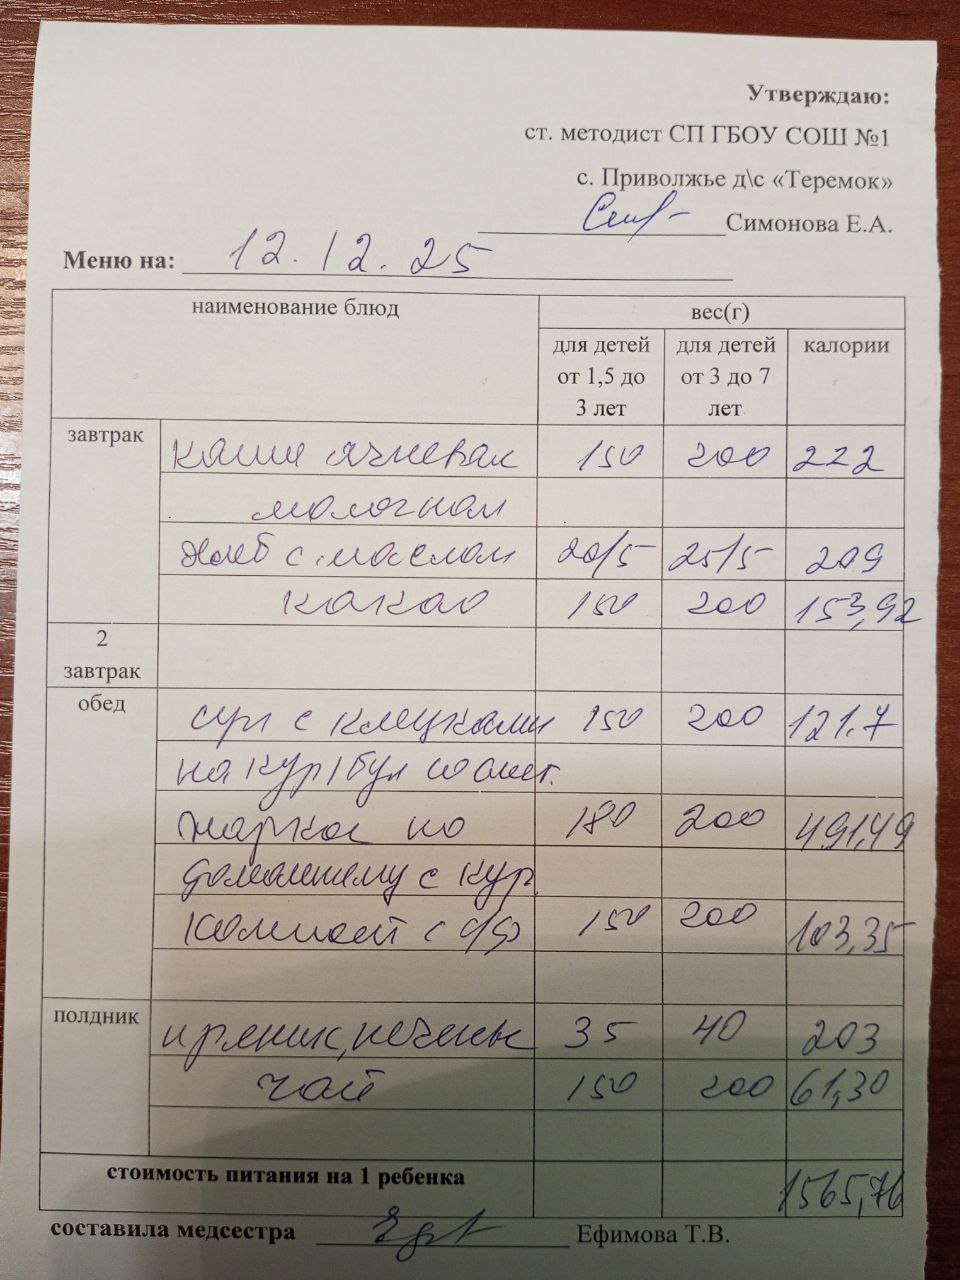 Утверждаю:
ст. методист СП ГБОУ СОШ №1
с. Приволжье д\с «Теремок»
Симонова Е.А.
Меню на: 12.12.25
наименование блюд вес(г)
для детей от 1,5 до 3 лет для детей от 3 до 7 лет калории
завтрак каша ячневая 150 200 222
молочная
хлеб с маслом 20/5 25/5 209
какао 150 200 153,92
2 завтрак
обед суп с клецками 150 200 121.7
на кур/бул со смет.
жаркое по 180 200 491,49
домашнему с кур
компот с с/ф 150 200 103,35
полдник пряник, печенье 35 40 203
чай 150 200 61,30
стоимость питания на 1 ребенка 1565,76
составила медсестра Ефимова Т.В.